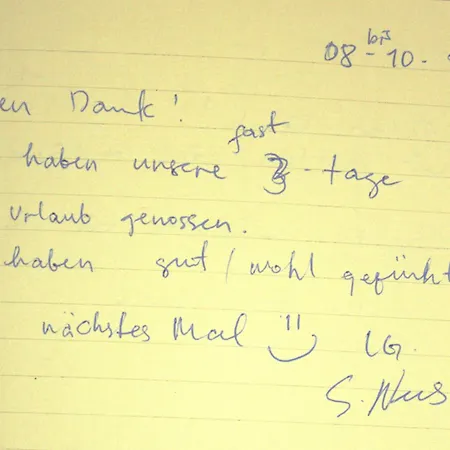 08 - bis 10.
en Dank!
fast
haben unsere 3-tage
Urlaub genossen.
haben gut/wohl gefühlt
nächstes Mal ü LG.
S.